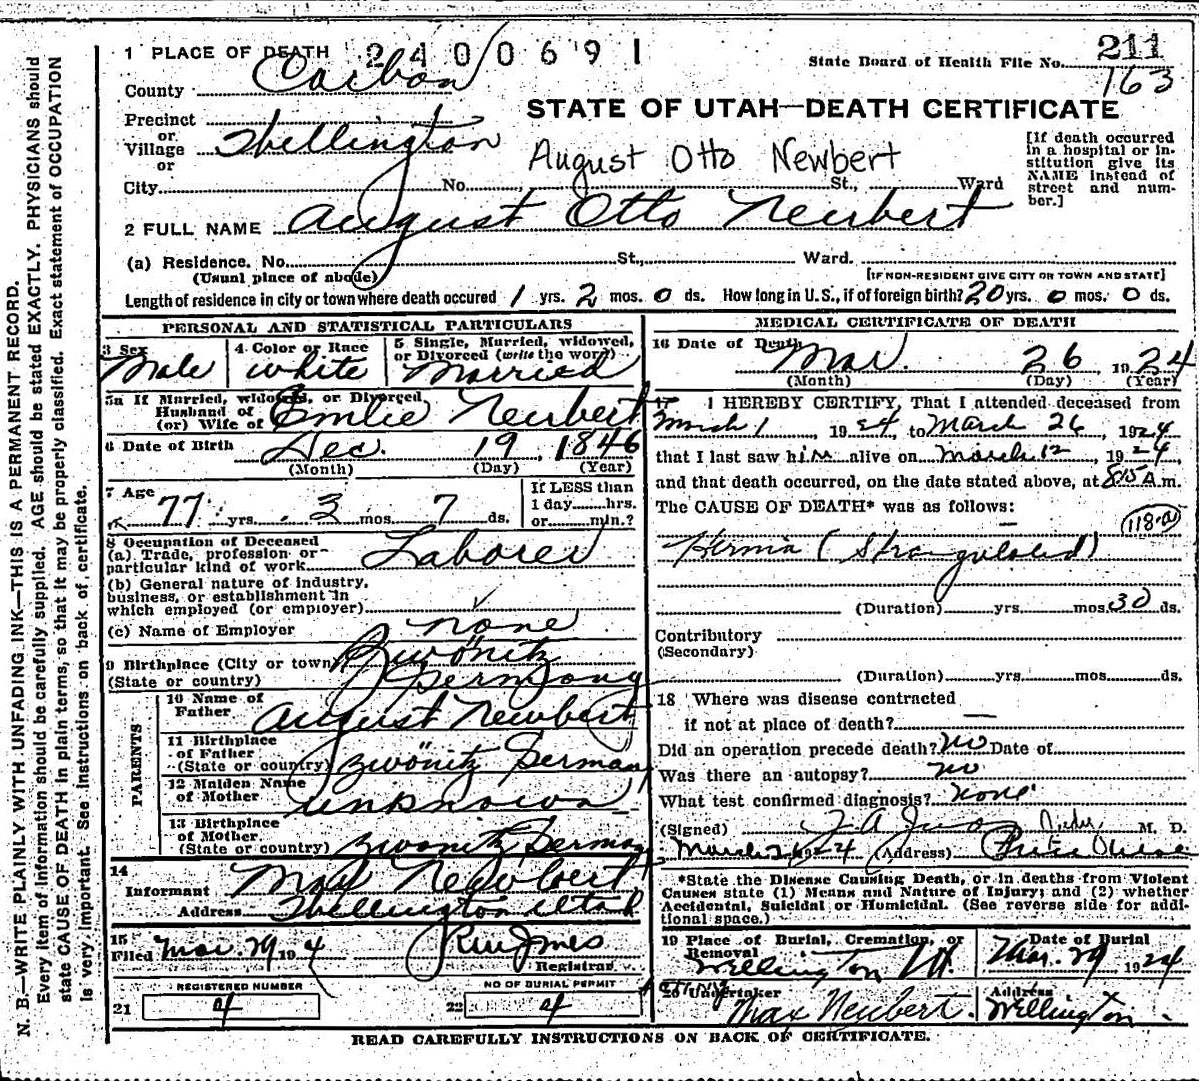 1 PLACE OF DEATH 2400691
State Board of Health File No. 211
163
County Carbon
STATE OF UTAH—DEATH CERTIFICATE
Precinct
or
Village Wellington
or
August Otto Newbert
[If death occurred
in a hospital or in-
stitution give its
NAME instead of
street and num-
ber.]
City No. St., Ward
2 FULL NAME August Otto Neubert
(a) Residence. No. St., Ward.
(Usual place of abode) [IF NON-RESIDENT GIVE CITY OR TOWN AND STATE]
Length of residence in city or town where death occured 1 yrs. 2 mos. 0 ds. How long in U.S., if of foreign birth? 20 yrs. 0 mos. 0 ds.
PERSONAL AND STATISTICAL PARTICULARS
3 Sex Male
4 Color or Race white
5 Single, Married, widowed,
or Divorced (write the word)
Married
5a If Married, widowed, or Divorced
Husband of
(or) Wife of Emlie Neubert
6 Date of Birth Dec. 19, 1846
(Month) (Day) (Year)
7 Age 77 yrs. 3 mos. 7 ds.
If LESS than
1 day hrs.
or min.?
8 Occupation of Deceased
(a) Trade, profession or
particular kind of work Laborer
(b) General nature of industry,
business, or establishment in
which employed (or employer)
(c) Name of Employer none
9 Birthplace (City or town) Zwönitz
(State or country) Germany
PARENTS
10 Name of
Father August Newbert
11 Birthplace
of Father
(State or country) Zwönitz German
12 Maiden Name
of Mother unknown
13 Birthplace
of Mother
(State or country) Zwönitz, German
14
Informant Max Newbert
Address Wellington Utah
15
Filed Mar. 29 19 4
Registrar
REGISTERED NUMBER
21 4
NO OF BURIAL PERMIT
22 4
MEDICAL CERTIFICATE OF DEATH
16 Date of Death Mar. 26 1924
(Month) (Day) (Year)
17 I HEREBY CERTIFY, That I attended deceased from
March 1, 1924, to March 26, 1924
that I last saw him alive on March 12, 1924,
and that death occurred, on the date stated above, at 8:15 A.m.
The CAUSE OF DEATH* was as follows:
118-a
Hernia (Strangulated)
(Duration) yrs. mos. 30 ds.
Contributory
(Secondary)
(Duration) yrs. mos. ds.
18 Where was disease contracted
if not at place of death? —
Did an operation precede death? no Date of
Was there an autopsy? no
What test confirmed diagnosis? none
(Signed) M. D.
March 26 1924 (Address)
*State the Disease Causing Death, or in deaths from Violent
Causes state (1) Means and Nature of Injury; and (2) whether
Accidental, Suicidal or Homicidal. (See reverse side for addi-
tional space.)
19 Place of Burial, Cremation, or
Removal
Wellington Ut.
Date of Burial
Mar. 29 1924
20 Undertaker
Max Neubert.
Address
Wellington
READ CAREFULLY INSTRUCTIONS ON BACK OF CERTIFICATE.
N. B.—WRITE PLAINLY WITH UNFADING INK—THIS IS A PERMANENT RECORD.
Every item of information should be carefully supplied. AGE should be stated EXACTLY. PHYSICIANS should
state CAUSE OF DEATH in plain terms, so that it may be properly classified. Exact statement of OCCUPATION
is very important. See instructions on back of certificate.